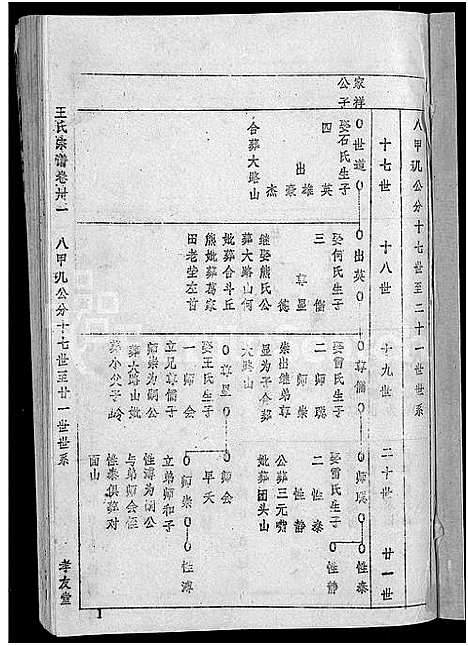 八甲玑公分十七世至二十一世世系
十七世
十八世
十九世
二十世
廿一世
家祥
公子
世道
娶石氏生子
四
英
出雄
豪
杰
合葬大路山
出英
娶何氏生子
三
儒
尊星
德
继娶熊氏公
葬大路山何
妣葬合斗丘
熊妣葬葛家
田老堂左首
尊儒
娶雷氏生子
二
师琨
师崇
崇出继弟尊
星为子合葬
大路山
尊星
娶王氏生子
一
师会
立兄尊儒子
师崇为嗣公
葬大路山妣
葬小父子岭
师琨
娶雷氏生子
二
性泰
性静
公葬三元嘴
妣葬团头山
师会
早夭
师崇
立弟师和子
性溥为嗣公
与弟师会侄
性泰俱葬对
面山
性泰
性静
性溥
王氏宗谱卷卅一
八甲玑公分十七世至廿一世世系
孝友堂
1